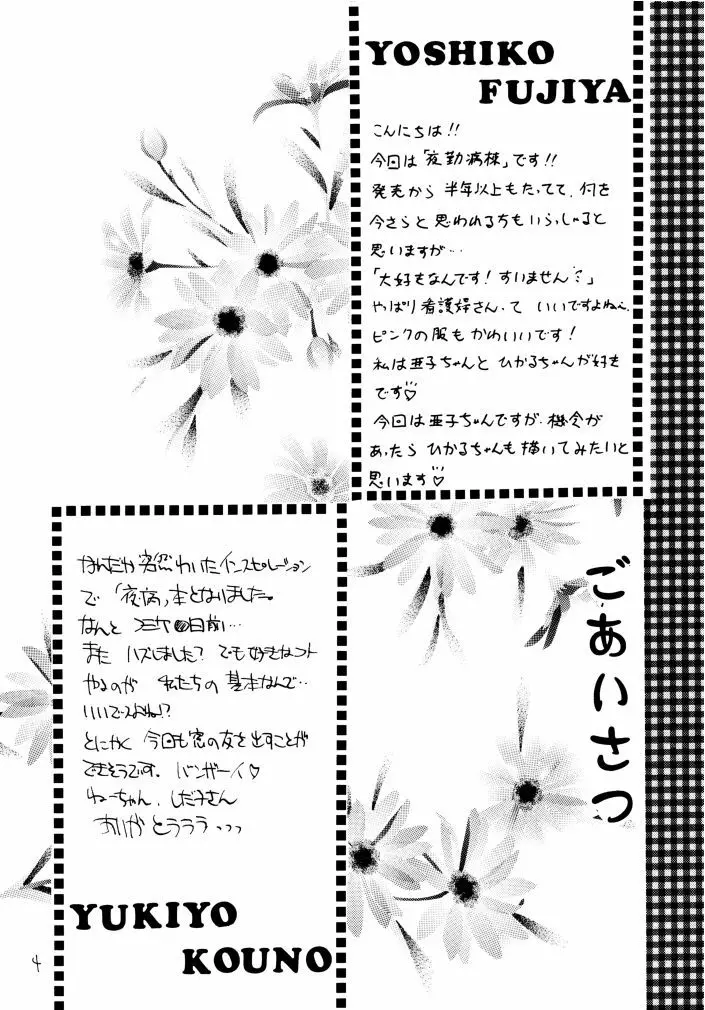 YOSHIKO
FUJIYA
こんにちは!!
今回は「夜勤病棟」です!!
発売から 半年以上もたってて、何を
今さらと思われる方もいらっしゃると
思いますが…
「大好きなんです!すいません〜」
やっぱり看護婦さんって いいですよねぇ
ピンクの服も かわいいです!
私は亜子ちゃんと ひかるちゃんが好き
です♡
今回は亜子ちゃんですが、機会が
あったら ひかるちゃんも 描いてみたいと
思います♡
ごあいさつ
なんだか突然わいたインスピレーション
で「夜病」本となりました。
なんと コミケ 日前…
また ハズしました? でも好きなコト
やるのが 私たちの 基本なんで…
いいですよね!?
とにかく 今回も窓の友を出すことが
できそうです。バンザーイ♡
ねーちゃん、しだ子さん
ありがとうううう...
YUKIYO
KOUNO
4